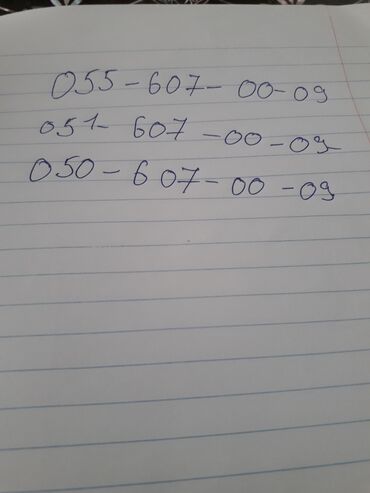 055-607-00-09
051-607-00-09
050-607-00-09